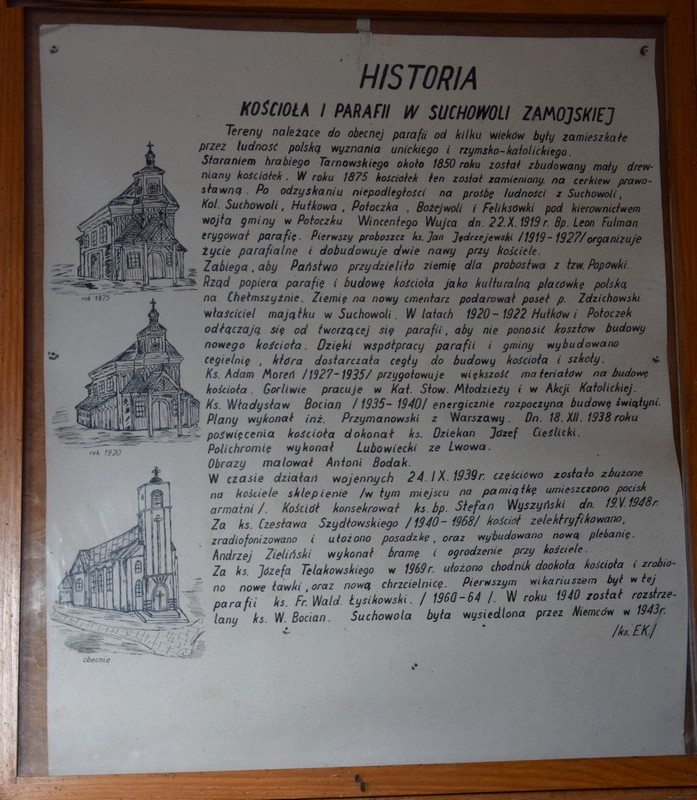 HISTORIA
KOŚCIOŁA I PARAFII W SUCHOWOLI ZAMOJSKIEJ
Tereny należące do obecnej parafii od kilku wieków były zamieszkałe
przez ludność polską wyznania unickiego i rzymsko-katolickiego.
Staraniem hrabiego Tarnowskiego około 1850 roku został zbudowany mały drew-
niany kościołek. W roku 1875 kościołek ten został zamieniony na cerkiew prawo-
sławną. Po odzyskaniu niepodległości na prośbę ludności z Suchowoli,
Kol. Suchowoli, Hutkowa, Potoczka, Bożejwoli i Feliksówki pod kierownictwem
wójta gminy w Potoczku Wincentego Wujca dn. 22.X.1919 r. Bp. Leon Fulman
erygował parafię. Pierwszy proboszcz ks. Jan Jędrzejewski /1919-1927/ organizuje
życie parafialne i dobudowuje dwie nawy przy kościele.
Zabiega, aby Państwo przydzieliło ziemię dla probostwa z tzw. Popówki.
Rząd popiera parafię i budowę kościoła jako kulturalną placówkę polską
na Chełmszyźnie. Ziemię na nowy cmentarz podarował poseł p. Zdzichowski
właściciel majątku w Suchowoli. W latach 1920-1922 Hutków i Potoczek
odłączają się od tworzącej się parafii, aby nie ponosić kosztów budowy
nowego kościoła. Dzięki współpracy parafii i gminy wybudowano
cegielnię, która dostarczała cegły do budowy kościoła i szkoły.
Ks. Adam Moreń /1927-1935/ przygotowuje większość materiałów na budowę
kościoła. Gorliwie pracuje w Kat. Stow. Młodzieży i w Akcji Katolickiej.
Ks. Władysław Bocian /1935-1940/ energicznie rozpoczyna budowę świątyni.
Plany wykonał inż. Przymanowski z Warszawy. Dn. 18.XII.1938 roku
poświęcenia kościoła dokonał ks. Dziekan Józef Cieślicki.
Polichromię wykonał Lubowiecki ze Lwowa.
Obrazy malował Antoni Bodak.
W czasie działań wojennych 24.IX.1939r. częściowo zostało zburzone
na kościele sklepienie /w tym miejscu na pamiątkę umieszczono pocisk
armatni/. Kościół konsekrował ks. bp. Stefan Wyszyński dn. 19.V.1948r.
Za ks. Czesława Szydłowskiego /1940-1968/ kościół zelektryfikowano,
zradiofonizowano i ułożono posadzkę, oraz wybudowano nową plebanię.
Andrzej Zieliński wykonał bramę i ogrodzenie przy kościele.
Za ks. Józefa Telakowskiego w 1969r. ułożono chodnik dookoła kościoła i zrobio-
no nowe ławki, oraz nową chrzcielnicę. Pierwszym wikariuszem był w tej
parafii ks. Fr. Wald. Łysikowski. /1960-64/. W roku 1940 został rozstrze-
lany ks. W. Bocian. Suchowola była wysiedlona przez Niemców w 1943r.
/ks. E.K./
rok 1875
rok 1920
obecnie